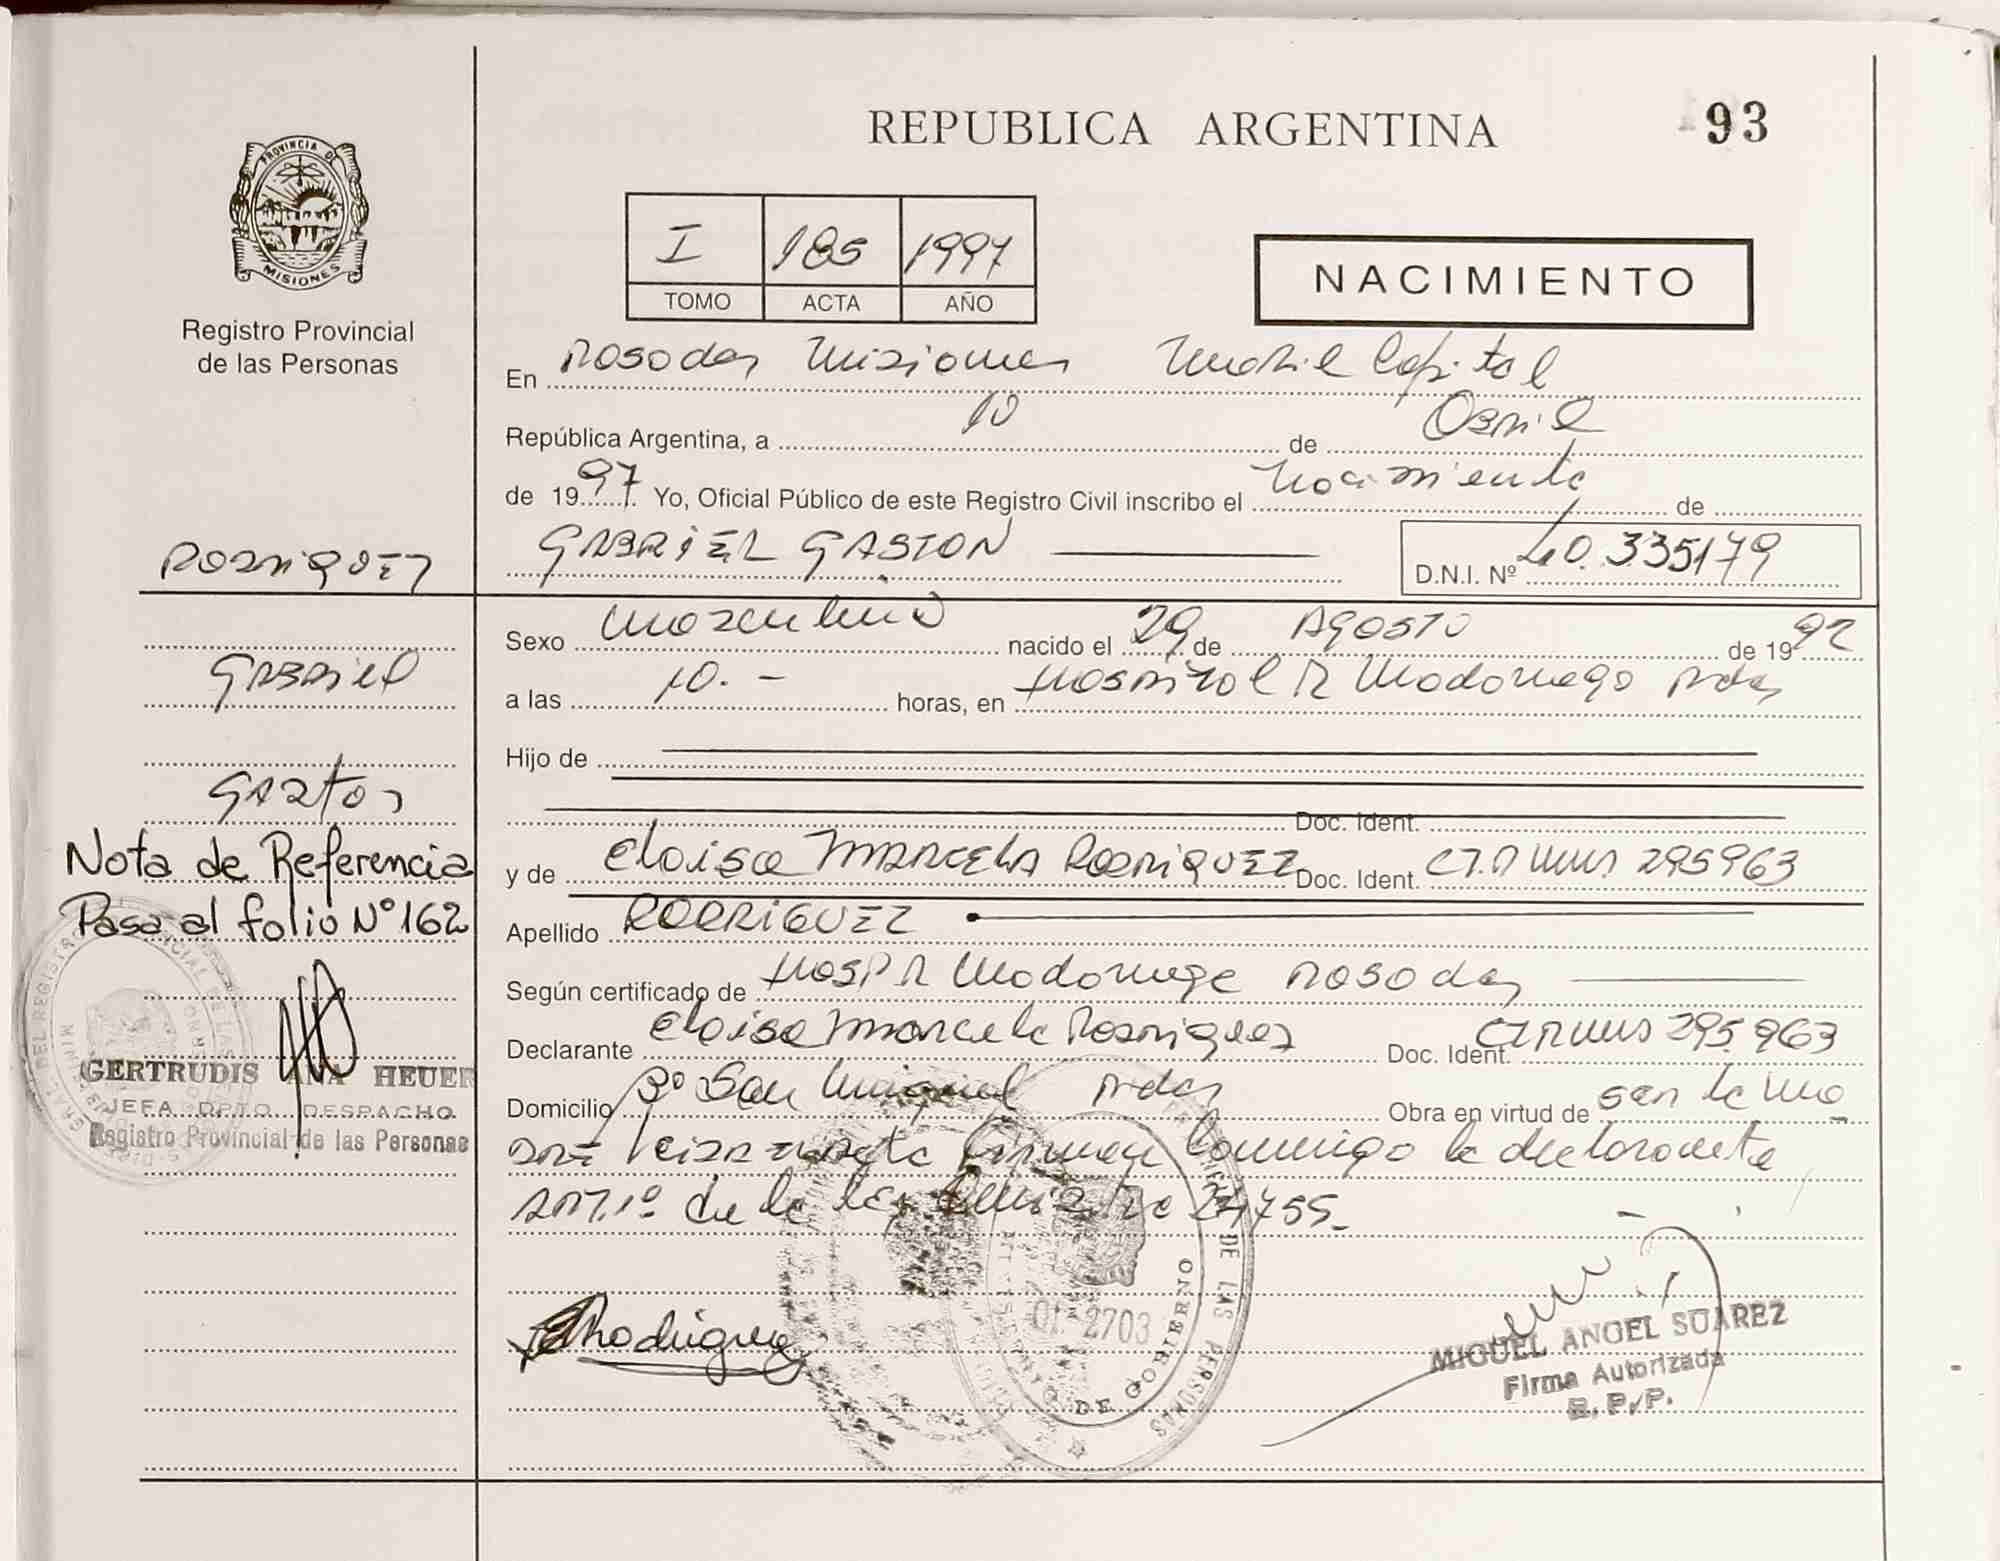 REPUBLICA ARGENTINA
93
PROVINCIA DE
MISIONES
Registro Provincial
de las Personas
I 185 1997
TOMO ACTA AÑO
NACIMIENTO
En Posadas Misiones Movil Capital
República Argentina, a 10 de Abril
de 1997 Yo, Oficial Público de este Registro Civil inscribo el Nacimiento de
RODRIGUEZ
GABRIEL GASTON
D.N.I. Nº 40.335179
Sexo Masculino nacido el 29 de AGOSTO de 1992
GABRIEL
a las 10.- horas, en Hospital R Madariaga Pdas
Hijo de
Gaston
Doc. Ident.
Nota de Referencia
y de Eloisa MARCELA RODRIGUEZ Doc. Ident. 295963
Pasa al folio Nº 162
Apellido RODRIGUEZ
Según certificado de Hosp R Madariaga Posadas
Declarante Eloisa Marcela Rodriguez Doc. Ident. 295.963
GERTRUDIS ANA HEUER
JEFA DPTO. DESPACHO
Registro Provincial de las Personas
Domicilio Bº San Miguel Pdas Obra en virtud de ser la Ma
dre firman conmigo la declarante
Art. 1º de la Ley 24755-
Rodriguez
01 2703
DE GOBIERNO
DE LAS PERSONAS
MIGUEL ANGEL SUAREZ
Firma Autorizada
R.P.P.